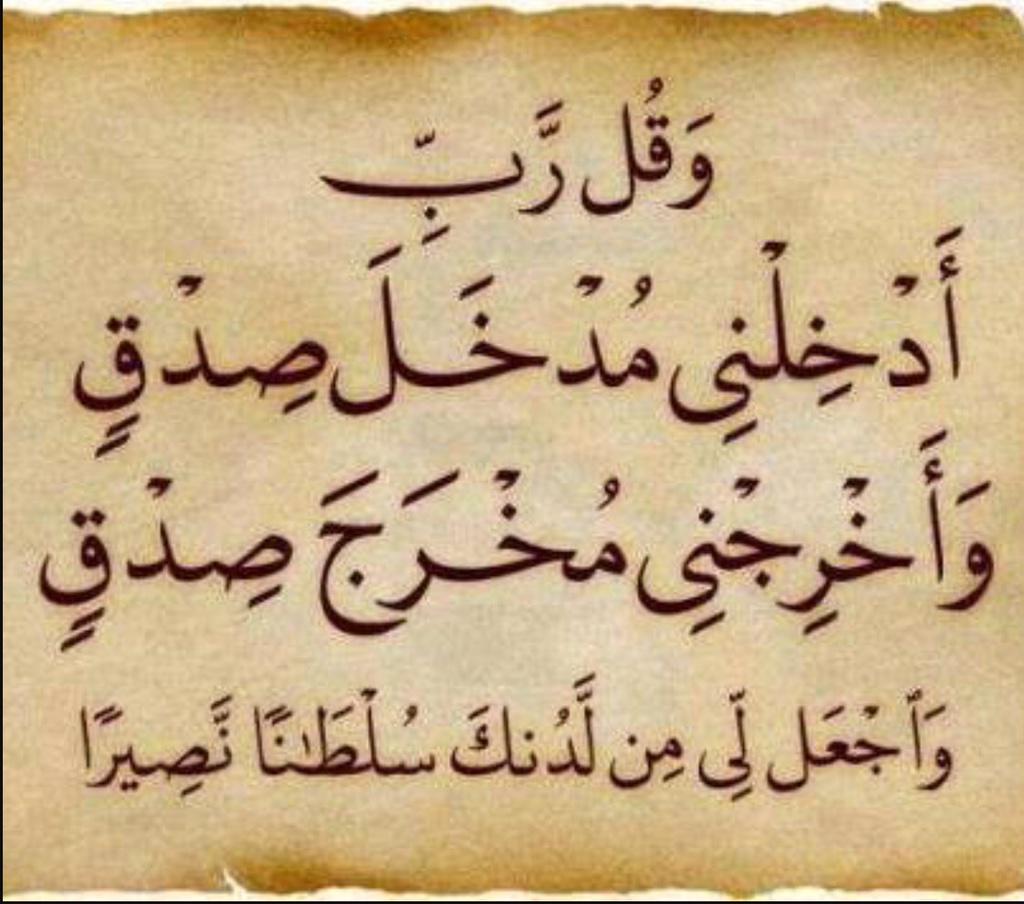 وَقُل رَّبِّ
أَدْخِلْنِي مُدْخَلَ صِدْقٍ
وَأَخْرِجْنِي مُخْرَجَ صِدْقٍ
وَٱجْعَل لِّي مِن لَّدُنكَ سُلْطَٰنًا نَّصِيرًا